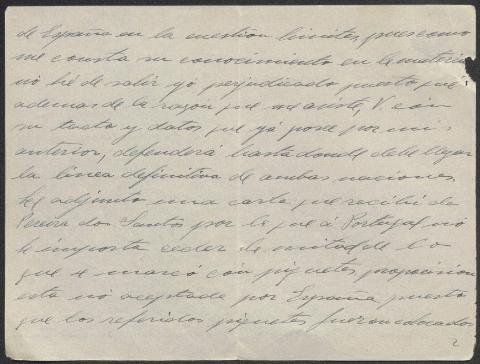 de España en la cuestión limites, pues como
me consta su conocimiento en la materia
no hé de salir yo perjudicado puesto que
ademas de la razon que me asiste, V. con
su tacto y datos que yá posee por mi
anterior, defenderá hasta donde debe llegar
la linea definitiva de ambas naciones.
Le adjunto una carta que recibi de
Pereira dos Santos por la que á Portugal no
le importa ceder la mitad de lo
que se marcó con piquetes, proposicion
esta nó aceptada por España puesto
que los referidos piquetes fueron colocados
2